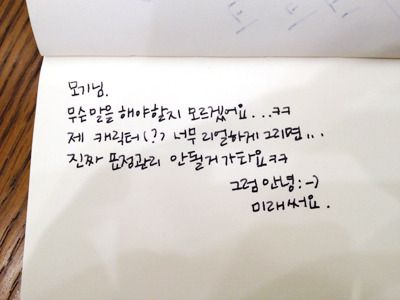 모기님.
무슨말을 해야할지 모르겠어요...ㅋㅋ
제 캐릭터(?) 너무 리얼하게 그리면...
진짜 표정관리 안될거 가타요ㅋㅋ
그럼 안녕:-)
미래써요.